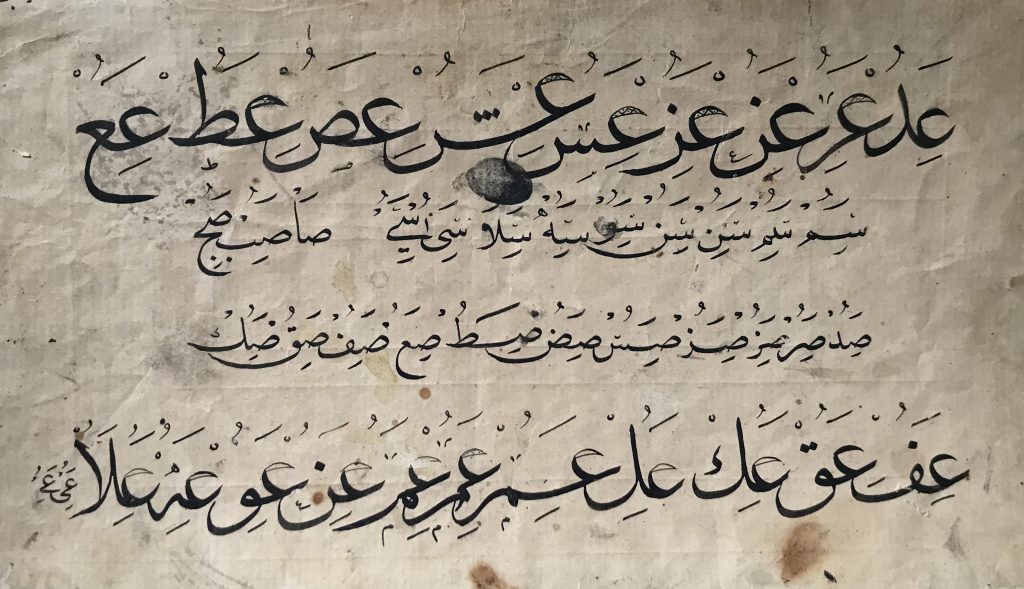 عد عر عر عر عس عس عص عط عع
سم سم سن سن سو سه سلا سى سى صا صب صج
صد صر صر صر صس صص صط صع صف صق صك
عف عق عك عل عم عم عم عن عو عه علا عى عى